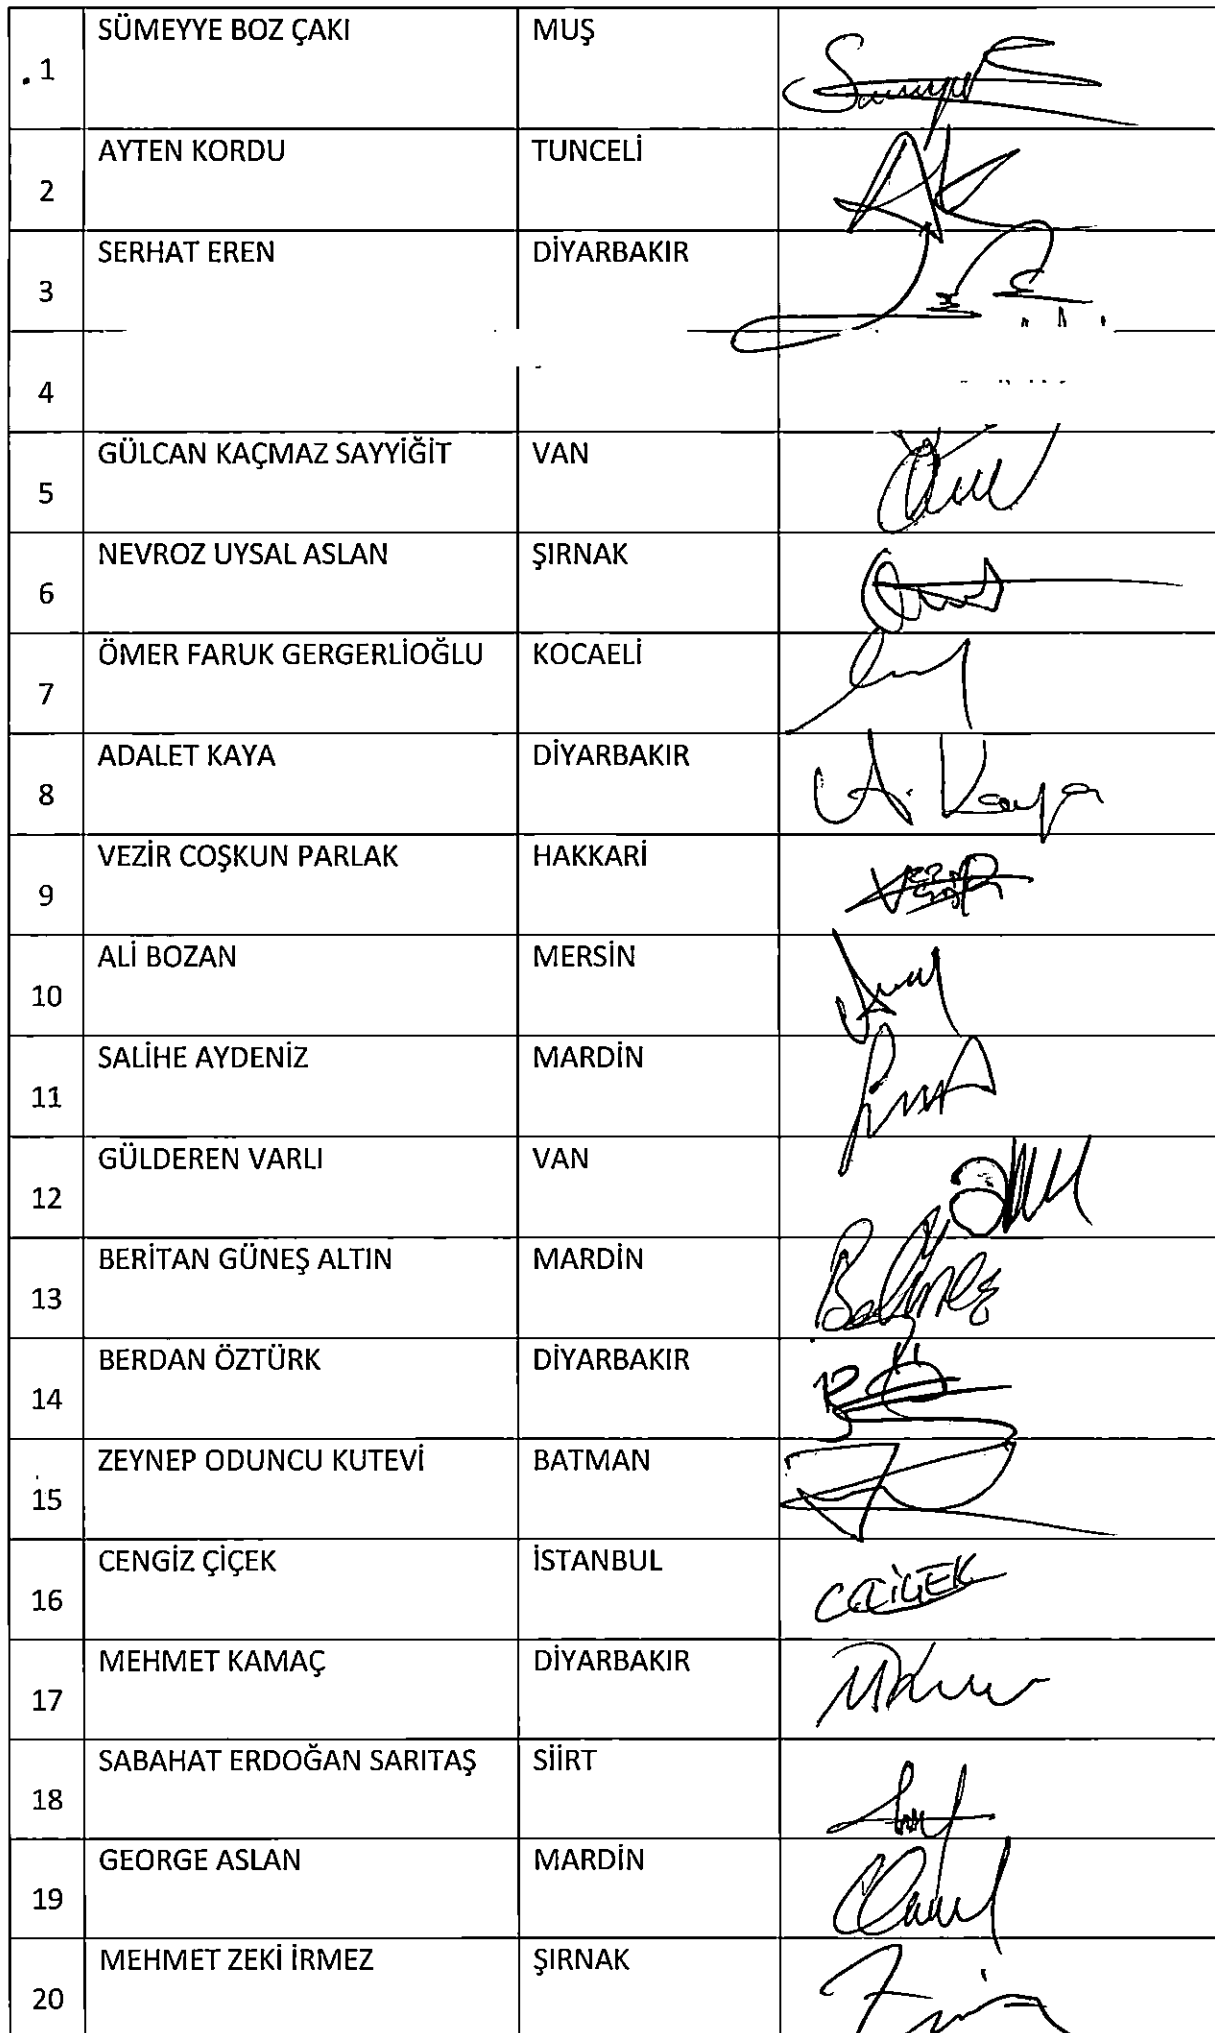 1 SÜMEYYE BOZ ÇAKI MUŞ
2 AYTEN KORDU TUNCELİ AK
3 SERHAT EREN DİYARBAKIR
4
5 GÜLCAN KAÇMAZ SAYYİĞİT VAN
6 NEVROZ UYSAL ASLAN ŞIRNAK
7 ÖMER FARUK GERGERLİOĞLU KOCAELİ
8 ADALET KAYA DİYARBAKIR A. Kaya
9 VEZİR COŞKUN PARLAK HAKKARİ
10 ALİ BOZAN MERSİN
11 SALİHE AYDENİZ MARDİN
12 GÜLDEREN VARLI VAN
13 BERİTAN GÜNEŞ ALTIN MARDİN
14 BERDAN ÖZTÜRK DİYARBAKIR
15 ZEYNEP ODUNCU KUTEVİ BATMAN
16 CENGİZ ÇİÇEK İSTANBUL C.ÇİÇEK
17 MEHMET KAMAÇ DİYARBAKIR
18 SABAHAT ERDOĞAN SARITAŞ SİİRT
19 GEORGE ASLAN MARDİN
20 MEHMET ZEKİ İRMEZ ŞIRNAK